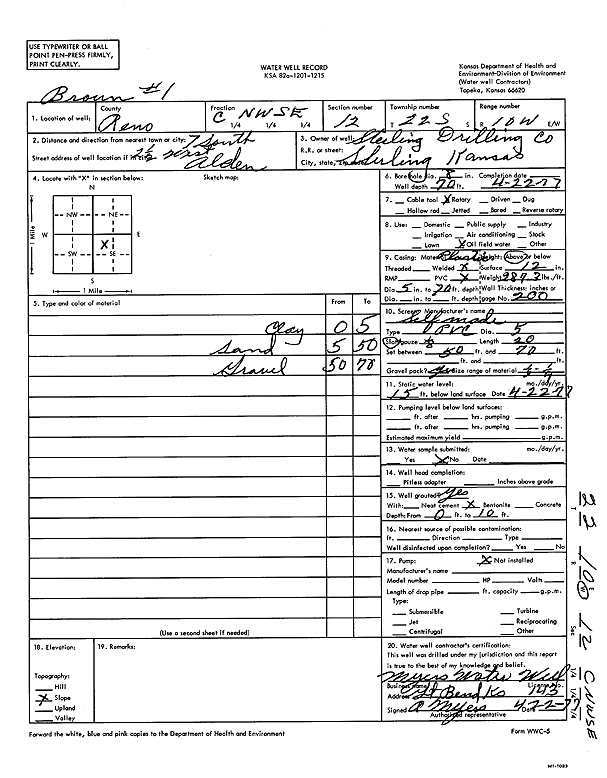 USE TYPEWRITER OR BALL
POINT PEN-PRESS FIRMLY,
PRINT CLEARLY.
WATER WELL RECORD
KSA 82a-1201-1215
Kansas Department of Health and
Environment-Division of Environment
(Water well Contractors)
Topeka, Kansas 66620
Brown #1
1. Location of well: County Reno
Fraction C NWSE 1/4 1/4 1/4
Section number 12
Township number T 22S S
Range number R 10W E/W
2. Distance and direction from nearest town or city: 7 South
2½ West
Street address of well location if in city: Alden
3. Owner of well: Sterling Drilling Co
R.R. or street:
City, state, zip code: Sterling Kansas
4. Locate with "X" in section below:
Sketch map:
N
NW NE
W E
X
SW SE
S
1 Mile
1 Mile
5. Type and color of material From To
Clay 0 5
Sand 5 50
Gravel 50 70
(Use a second sheet if needed)
6. Bore hole dia. 8 in. Completion date
Well depth 70 ft. 4-22-77
7. Cable tool X Rotary Driven Dug
Hollow rod Jetted Bored Reverse rotary
8. Use: Domestic Public supply Industry
Irrigation Air conditioning Stock
Lawn X Oil field water Other
9. Casing: Material Plastic Height: Above or below
Threaded Welded X Surface 12 in.
RMP PVC X Weight lbs./ft.
Dia. 5 in. to 70 ft. depth Wall Thickness: inches or
Dia. in. to ft. depth gage No. 200
10. Screen: Manufacturer's name
Self made
Type PVC Dia. 5
Slot/gauze Length 20
Set between 50 ft. and 70 ft.
ft. and ft.
Gravel pack? Size range of material
11. Static water level: mo./day/yr.
15 ft. below land surface Date 4-22-77
12. Pumping level below land surfaces:
ft. after hrs. pumping g.p.m.
ft. after hrs. pumping g.p.m.
Estimated maximum yield g.p.m.
13. Water sample submitted: mo./day/yr.
Yes X No Date
14. Well head completion:
Pitless adapter Inches above grade
15. Well grouted? Yes
With: Neat cement X Bentonite Concrete
Depth: From 0 ft. to 10 ft.
16. Nearest source of possible contamination:
ft. Direction Type
Well disinfected upon completion? Yes No
17. Pump: X Not installed
Manufacturer's name
Model number HP Volts
Length of drop pipe ft. capacity g.p.m.
Type:
Submersible Turbine
Jet Reciprocating
Centrifugal Other
18. Elevation:
Topography:
Hill
X Slope
Upland
Valley
19. Remarks:
20. Water well contractor's certification:
This well was drilled under my jurisdiction and this report
is true to the best of my knowledge and belief.
Myers Water Well
Business name License No.
Address Gt Bend Ks 143
Signed Myers Date 4-22-77
Authorized representative
T 22 R 10 W Sec 12 CNWSE 1/4 1/4 1/4
Forward the white, blue and pink copies to the Department of Health and Environment
Form WWC-5